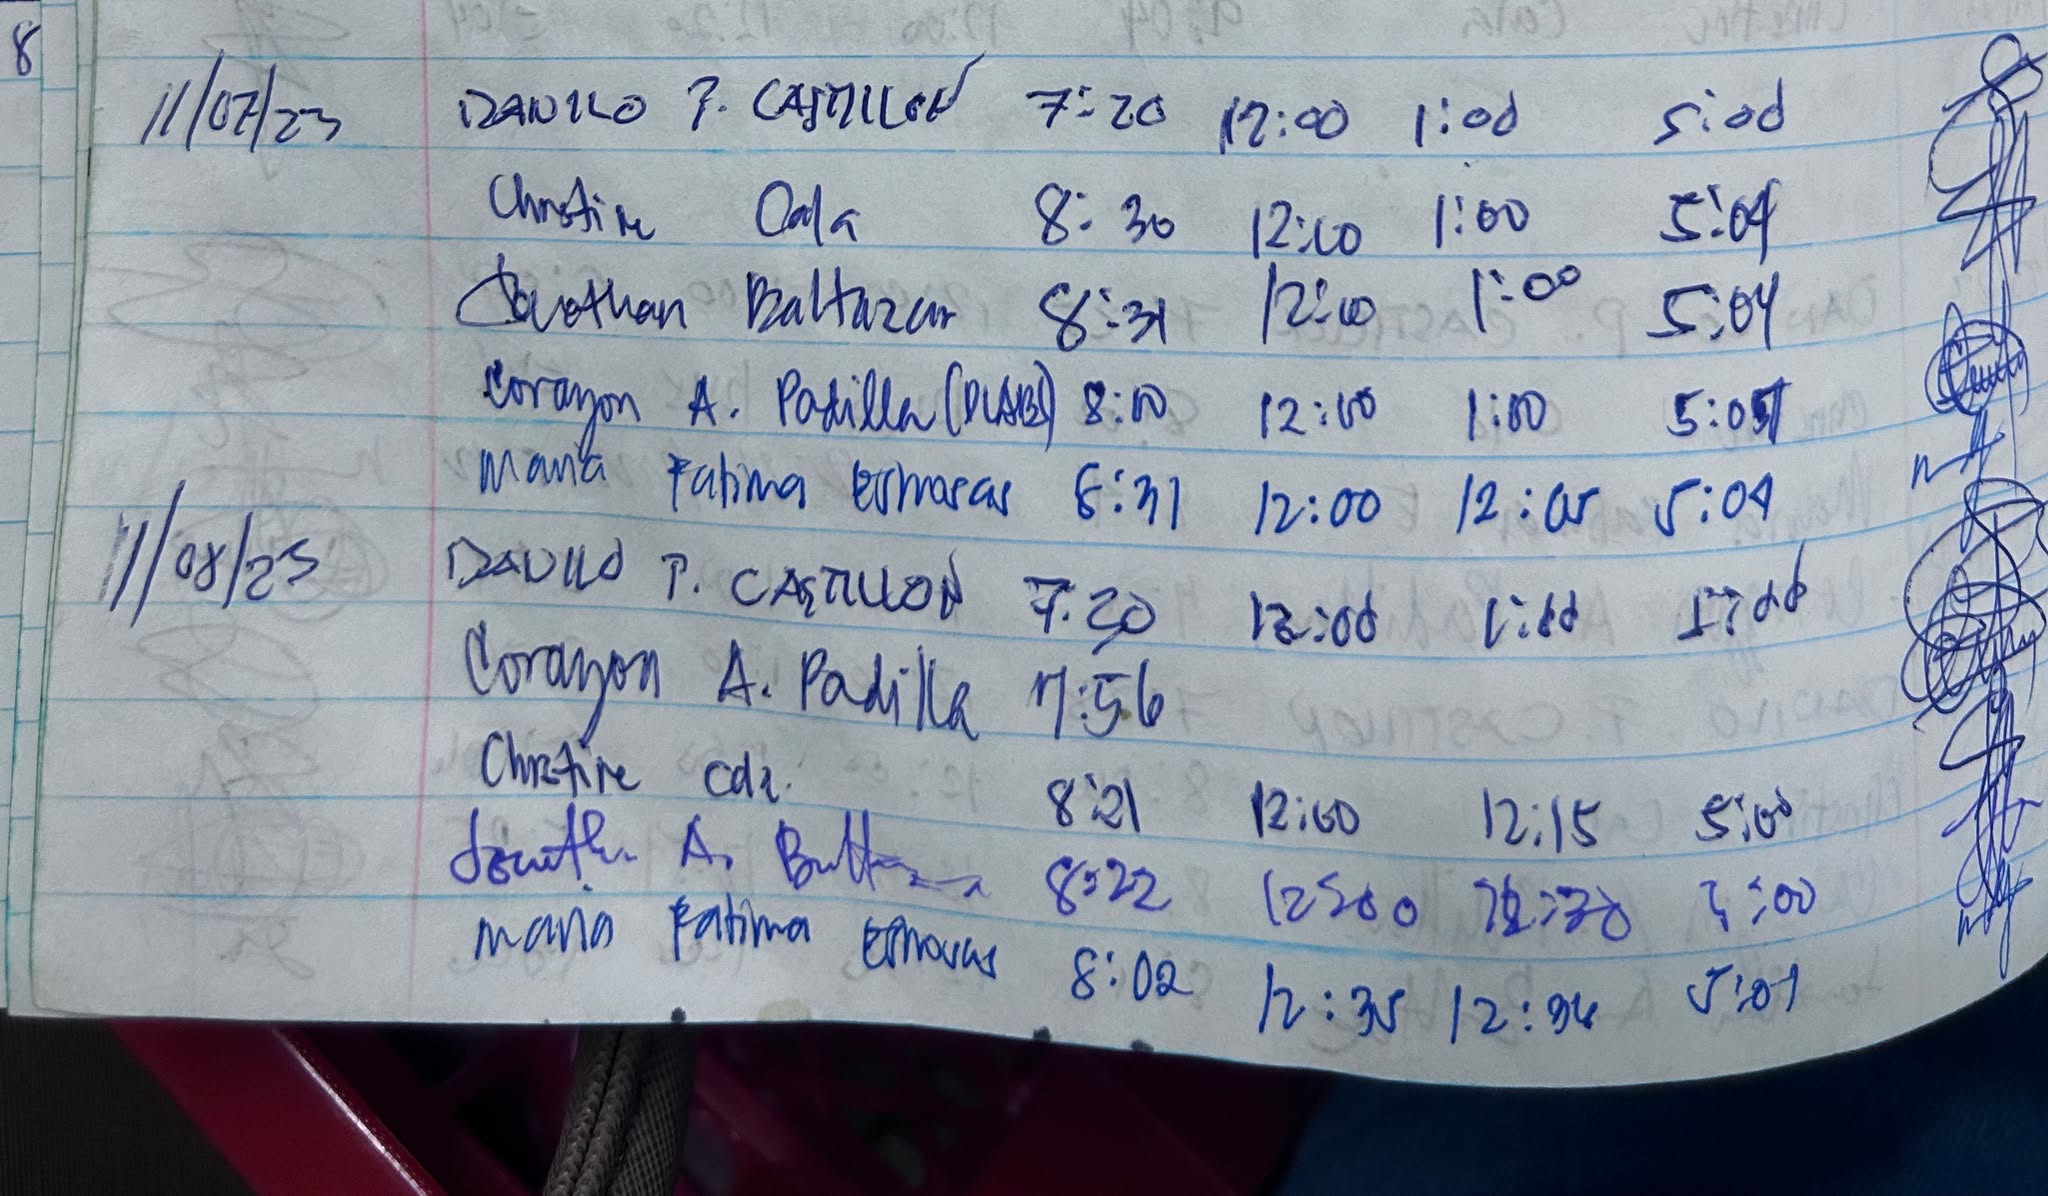 8
11/07/23 DANILO P. CASTILLON 7:20 12:00 1:00 5:00
Christine Cala 8:30 12:00 1:00 5:04
Jonathan Baltazar 8:31 12:00 1:00 5:04
Corazon A. Padilla 8:00 12:00 1:00 5:05
Maria Fatima 8:31 12:00 12:05 5:04
11/08/23 DANILO P. CASTILLON 7:20 12:00 1:00 5:00
Corazon A. Padilla 7:56
Christine 8:21 12:00 12:15 5:00
A. 8:22 12:00 5:00
Maria Fatima 8:02 12:35 12:36 5:01